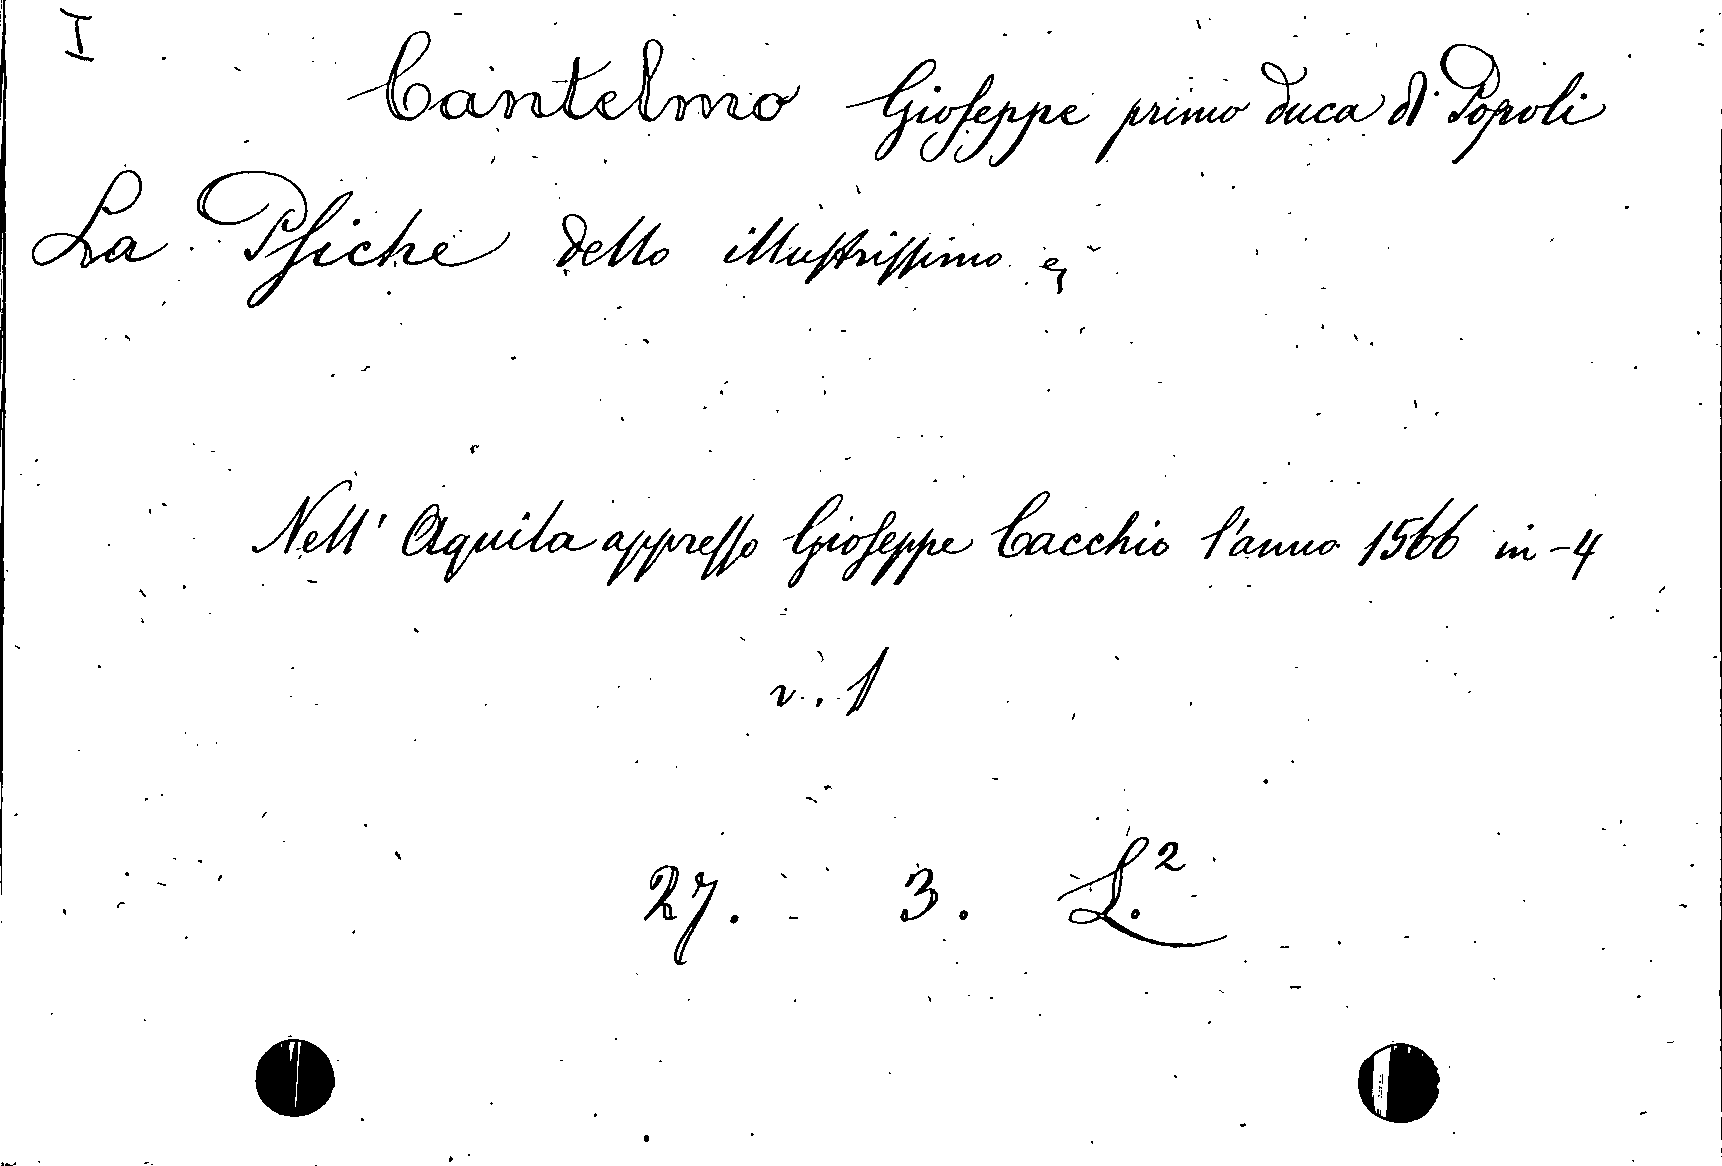 I
Cantelmo Gioseppe primo duca di Popoli
La Psiche dello illustrissimo
Nell' Aquila appresso Gioseppe Cacchio l'anno 1566 in-4
v. 1
27. 3. L.²